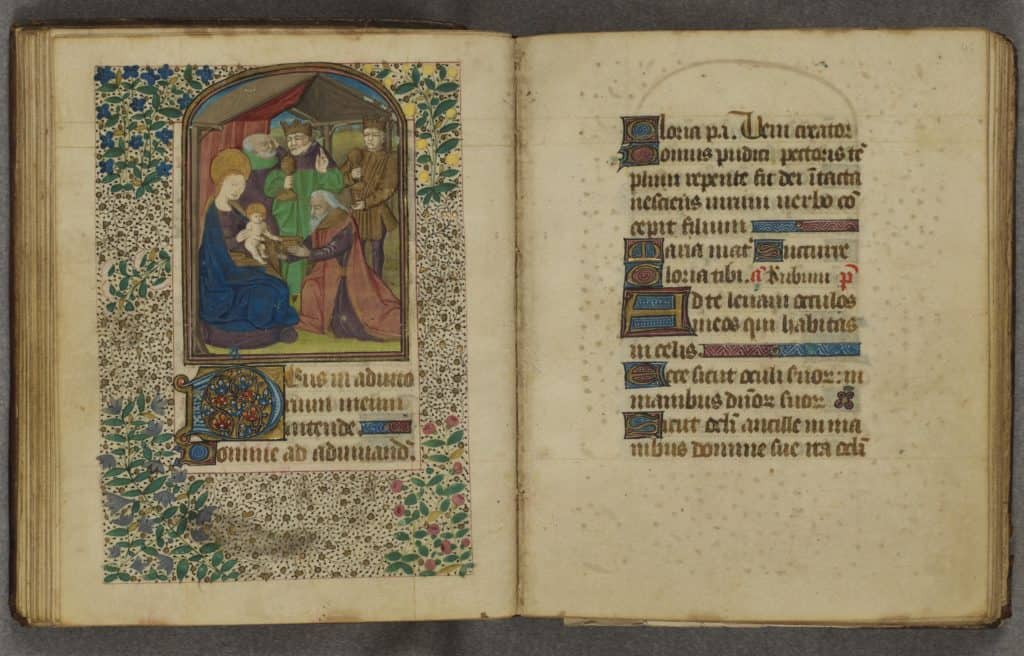 Deus in adiuto
rium meum
intende
Domine ad adiuuand̄.
Gloria p̄.i. Veni creator
Domus pudici pectoris tē
plum repente fit dei ītacta
nesciens uirum uerbo cō
cepit filium
Maria mat̄
Gloria tibi. ā Rubum p̄
Ad te leuaui occulos
meos qui habitas
in celis.
Ecce sicut oculi suor: in
manibus dn̄or suor
Sicut ocl̄i ancille in ma
nibus domine sue ita ocl̄i